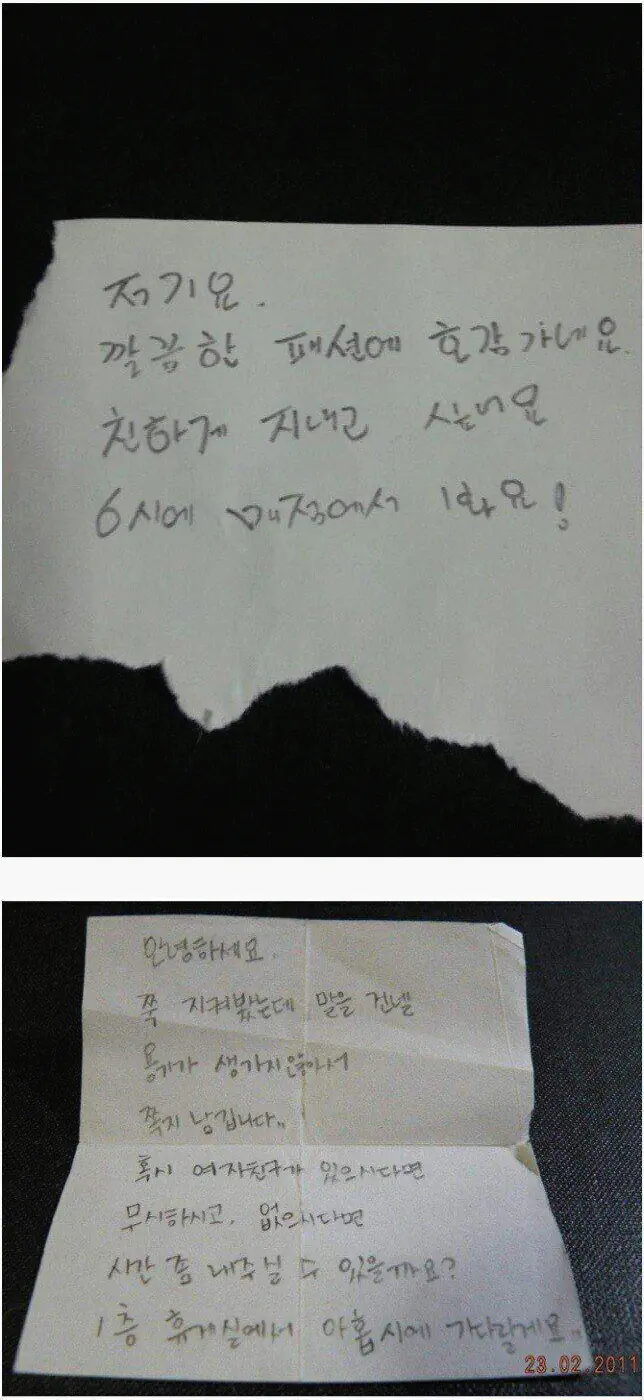 저기요.
깔끔한 패션에 호감가네요.
친하게 지내고 싶네요
6시에 매점에서 봐요!
안녕하세요.
쭉 지켜봤는데 말을 건넬
용기가 생기지않아서
쪽지 남깁니다..
혹시 여자친구가 있으시다면
무시하시고, 없으시다면
시간 좀 내주실 수 있을까요?
1층 휴게실에서 아홉시에 기다릴게요..
23.02.2011